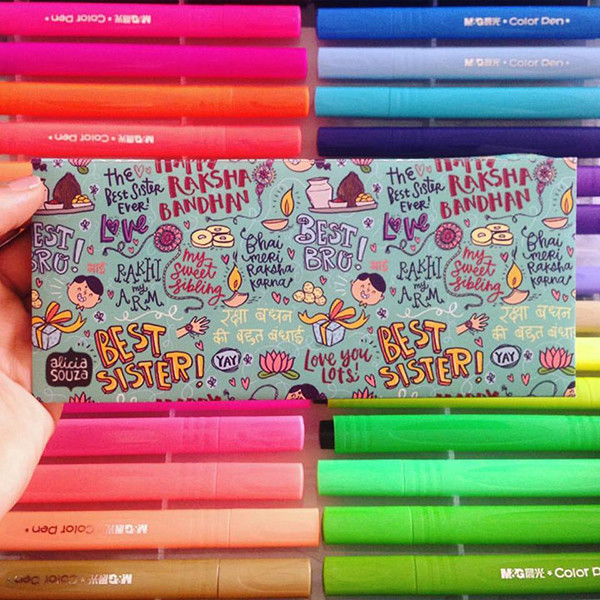 M&G晨光 * Color Pen *
M&G晨光 * Color Pen *
M&G晨光 * Color Pen
M&G晨光 * Color Pen *
HAPPY
RAKSHA
BANDHAN
the
Best Sister
Ever!
LOVE
BEST
BRO!
RAKHI
my
A.R.M.
My
Sweet
Sibling
Bhai
meri
Raksha
karna
BEST
SISTER!
YAY!
रक्षा बंधन
की बहुत बधाई
Love you
Lots!
the
Best Sister
Ever!
HAPPY
RAKSHA
BANDHAN
LOVE
BEST
BRO!
RAKHI
my
A.R.M.
My
Sweet
Sibling
Bhai
meri
Raksha
karna
BEST
SISTER!
YAY!
रक्षा बंधन
की बहुत बधाई
HAPPY
alicia
souza
Color Pen * M&G晨光
M&G晨光
M&G晨光 * Color Pen